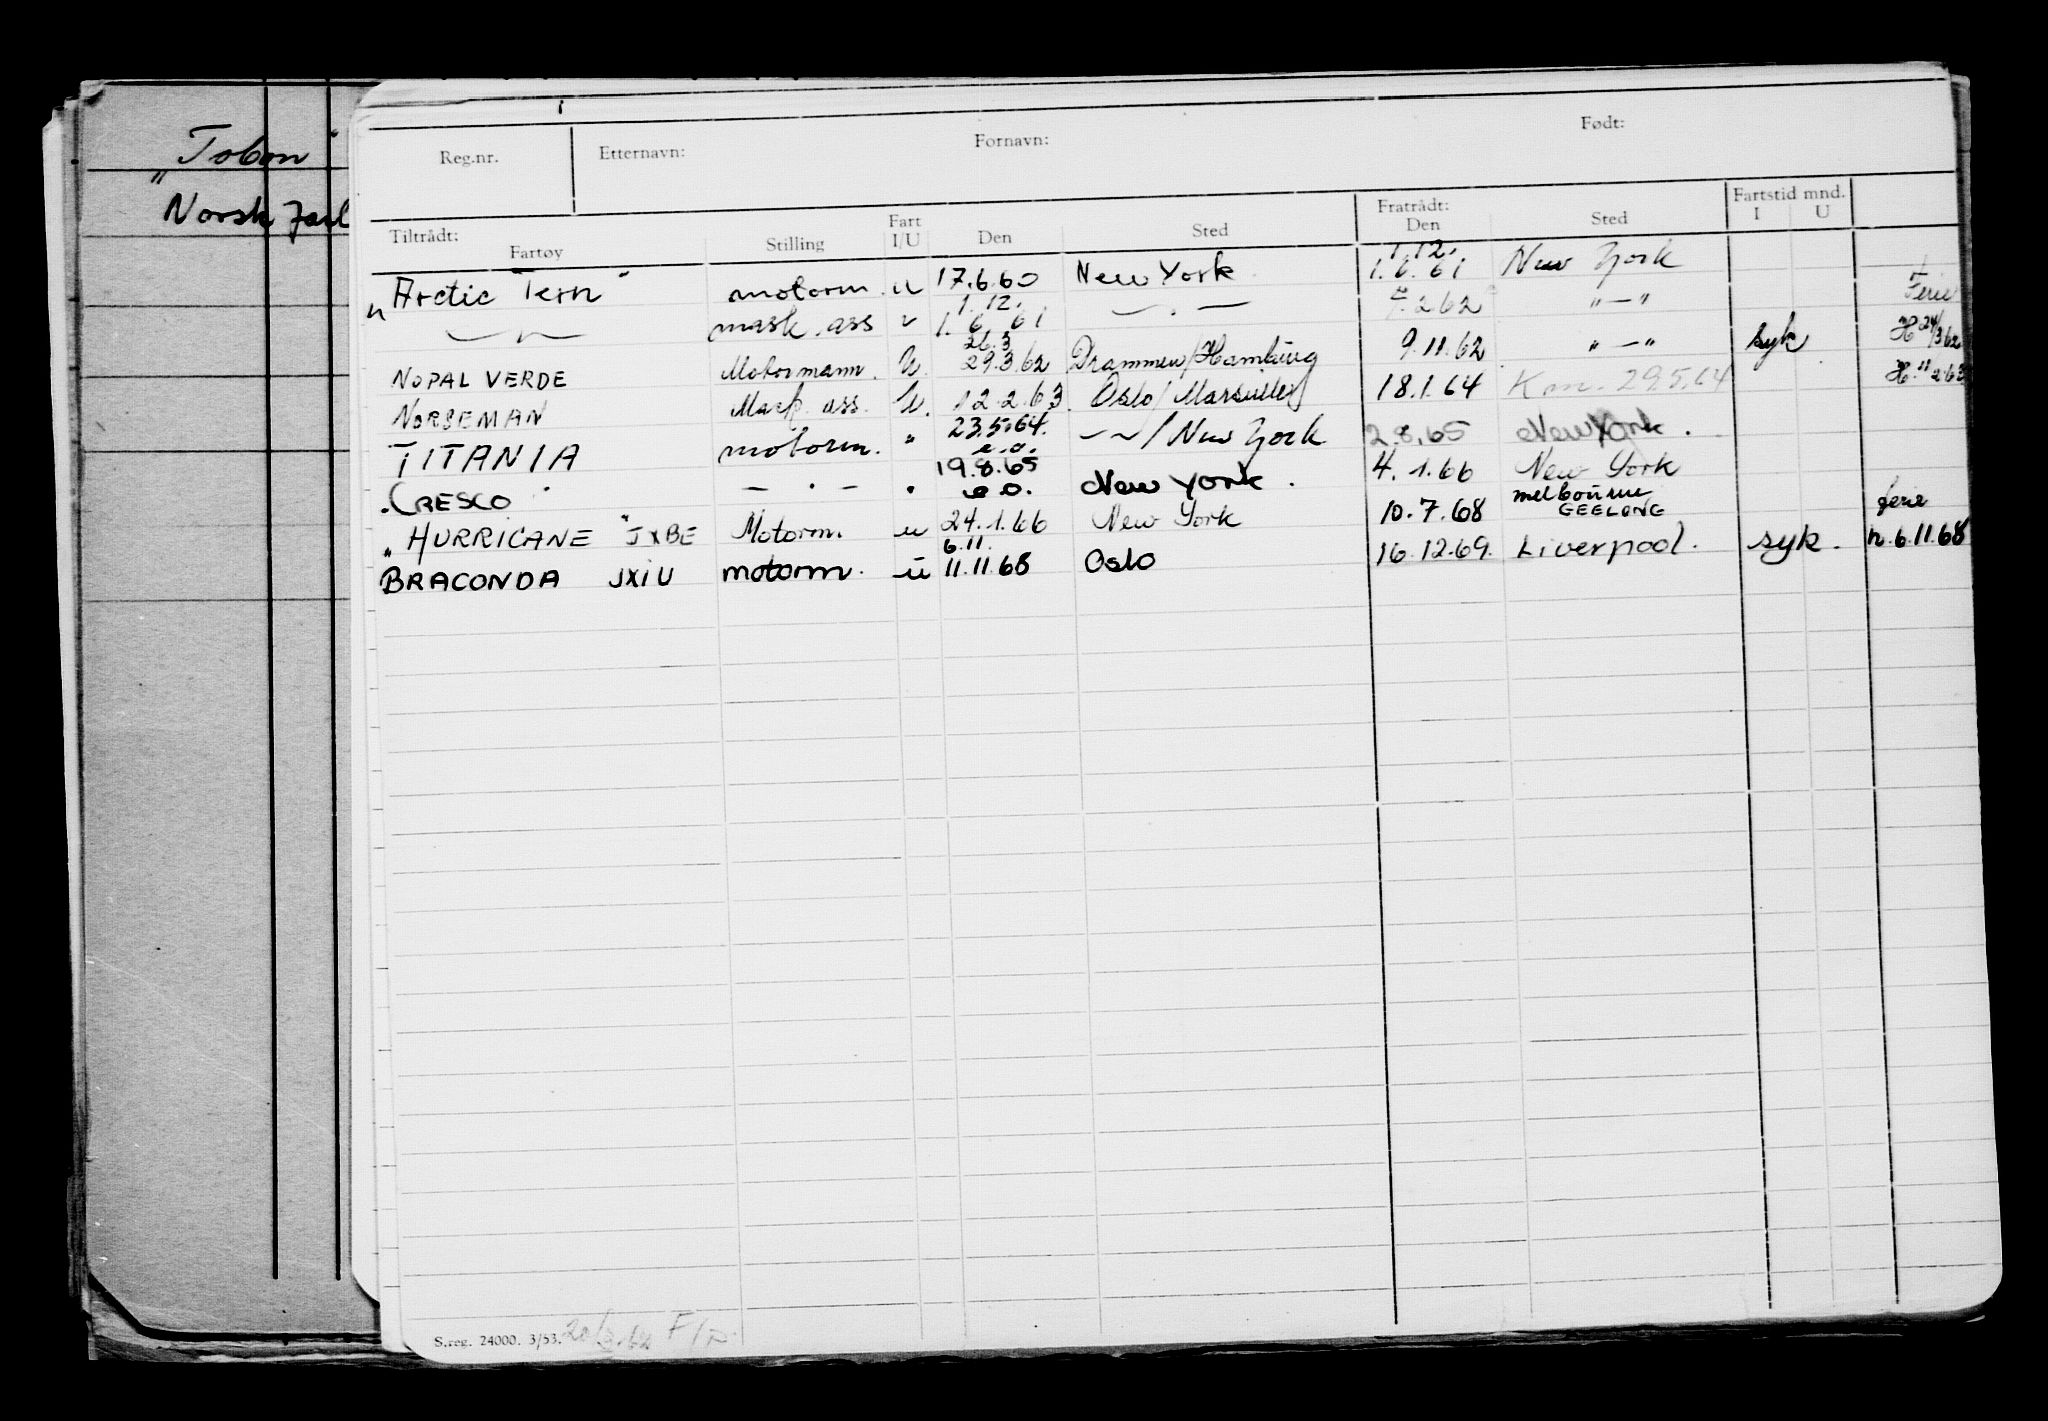 "Tobon"
Norsk Jarl
Reg.nr. Etternavn: Fornavn: Født:
Tiltrådt: Fratrådt: Fartstid mnd.
Fartøy Stilling Fart I/U Den Sted Den Sted I U
1.12.
"Arctic Tern" motorm. u 17.6.60 New York 1.6.61 New York
1.12.
— " — mask. ass 1.6.61 — " — 7.2.62 " — " Ferie
26.3
NOPAL VERDE Motormann. U. 29.3.62 Drammen/Hamburg 9.11.62 " — " syk H 24/3 62
NORSEMAN Mask. ass. U. 12.2.63. Oslo/Marseilles 18.1.64 Km. 29.5.64 H. 11/2.63
TITANIA motorm. " 23.5.64. — " — / New York 2.8.65 New York.
e.o.
CRESCO — " — " 19.8.65 New York. 4.1.66 New York
e.o.
"HURRICANE" JXBE Motorm. u 24.1.66 New York 10.7.68 Melbourne
GEELONG ferie
6.11.
BRACONDA JXIU motorm. u 11.11.68 Oslo 16.12.69. Liverpool. syk. h. 6.11.68
S.reg. 24000. 3/53.